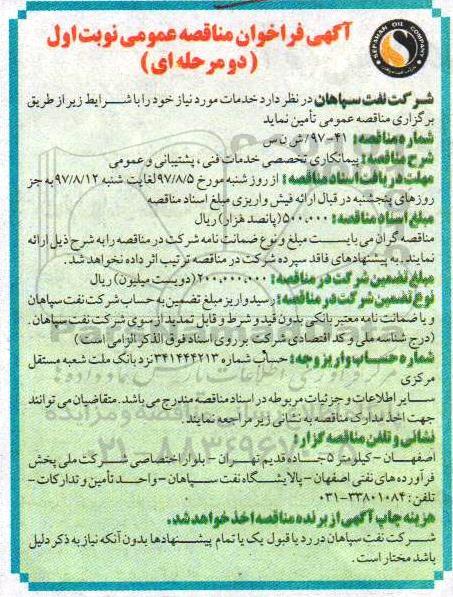 آگهی فراخوان مناقصه عمومی نوبت اول
(دو مرحله ای)
SEPAHAN OIL COMPANY
شرکت نفت سپاهان در نظر دارد خدمات مورد نیاز خود را با شرایط زیر از طریق
برگزاری مناقصه عمومی تأمین نماید
شماره مناقصه: ۴۱-۹۷/ش ن س
شرح مناقصه: پیمانکاری تخصصی خدمات فنی، پشتیبانی و عمومی
مهلت دریافت اسناد مناقصه: از روز شنبه مورخ ۹۷/۸/۵ لغایت شنبه ۹۷/۸/۱۲ به جز
روزهای پنجشنبه در قبال ارائه فیش واریزی مبلغ اسناد مناقصه
مبلغ اسناد مناقصه: ۵۰۰,۰۰۰ (پانصد هزار) ریال
مناقصه گران می بایست مبلغ و نوع ضمانت نامه شرکت در مناقصه را به شرح ذیل ارائه
نمایند. به پیشنهادهای فاقد سپرده شرکت در مناقصه ترتیب اثر داده نخواهد شد.
مبلغ تضمین شرکت در مناقصه: ۲۰۰,۰۰۰,۰۰۰ (دویست میلیون) ریال
نوع تضمین شرکت در مناقصه: رسید واریز مبلغ تضمین به حساب شرکت نفت سپاهان
و یا ضمانت نامه معتبر بانکی بدون قید و شرط و قابل تمدید از سوی شرکت نفت سپاهان.
(درج شناسه ملی و کد اقتصادی شرکت بر روی اسناد فوق الذکر الزامی است)
شماره حساب واریز وجه: حساب شماره ۳۴۱۴۴۴۲۱۳ نزد بانک ملت شعبه مستقل
مرکزی
سایر اطلاعات و جزئیات مربوطه در اسناد مناقصه مندرج می باشد. متقاضیان می توانند
جهت اخذ مدارک مناقصه به نشانی زیر مراجعه نمایند.
نشانی و تلفن مناقصه گزار:
اصفهان - کیلومتر ۵ جاده قدیم تهران - بلوار اختصاصی شرکت ملی پخش
فرآورده های نفتی اصفهان - پالایشگاه نفت سپاهان - واحد تأمین و تدارکات -
تلفن: ۳۳۸۰۱۰۸۴-۰۳۱
هزینه چاپ آگهی از برنده مناقصه اخذ خواهد شد.
شرکت نفت سپاهان در رد یا قبول یک یا تمام پیشنهادها بدون آنکه نیاز به ذکر دلیل
باشد مختار است.